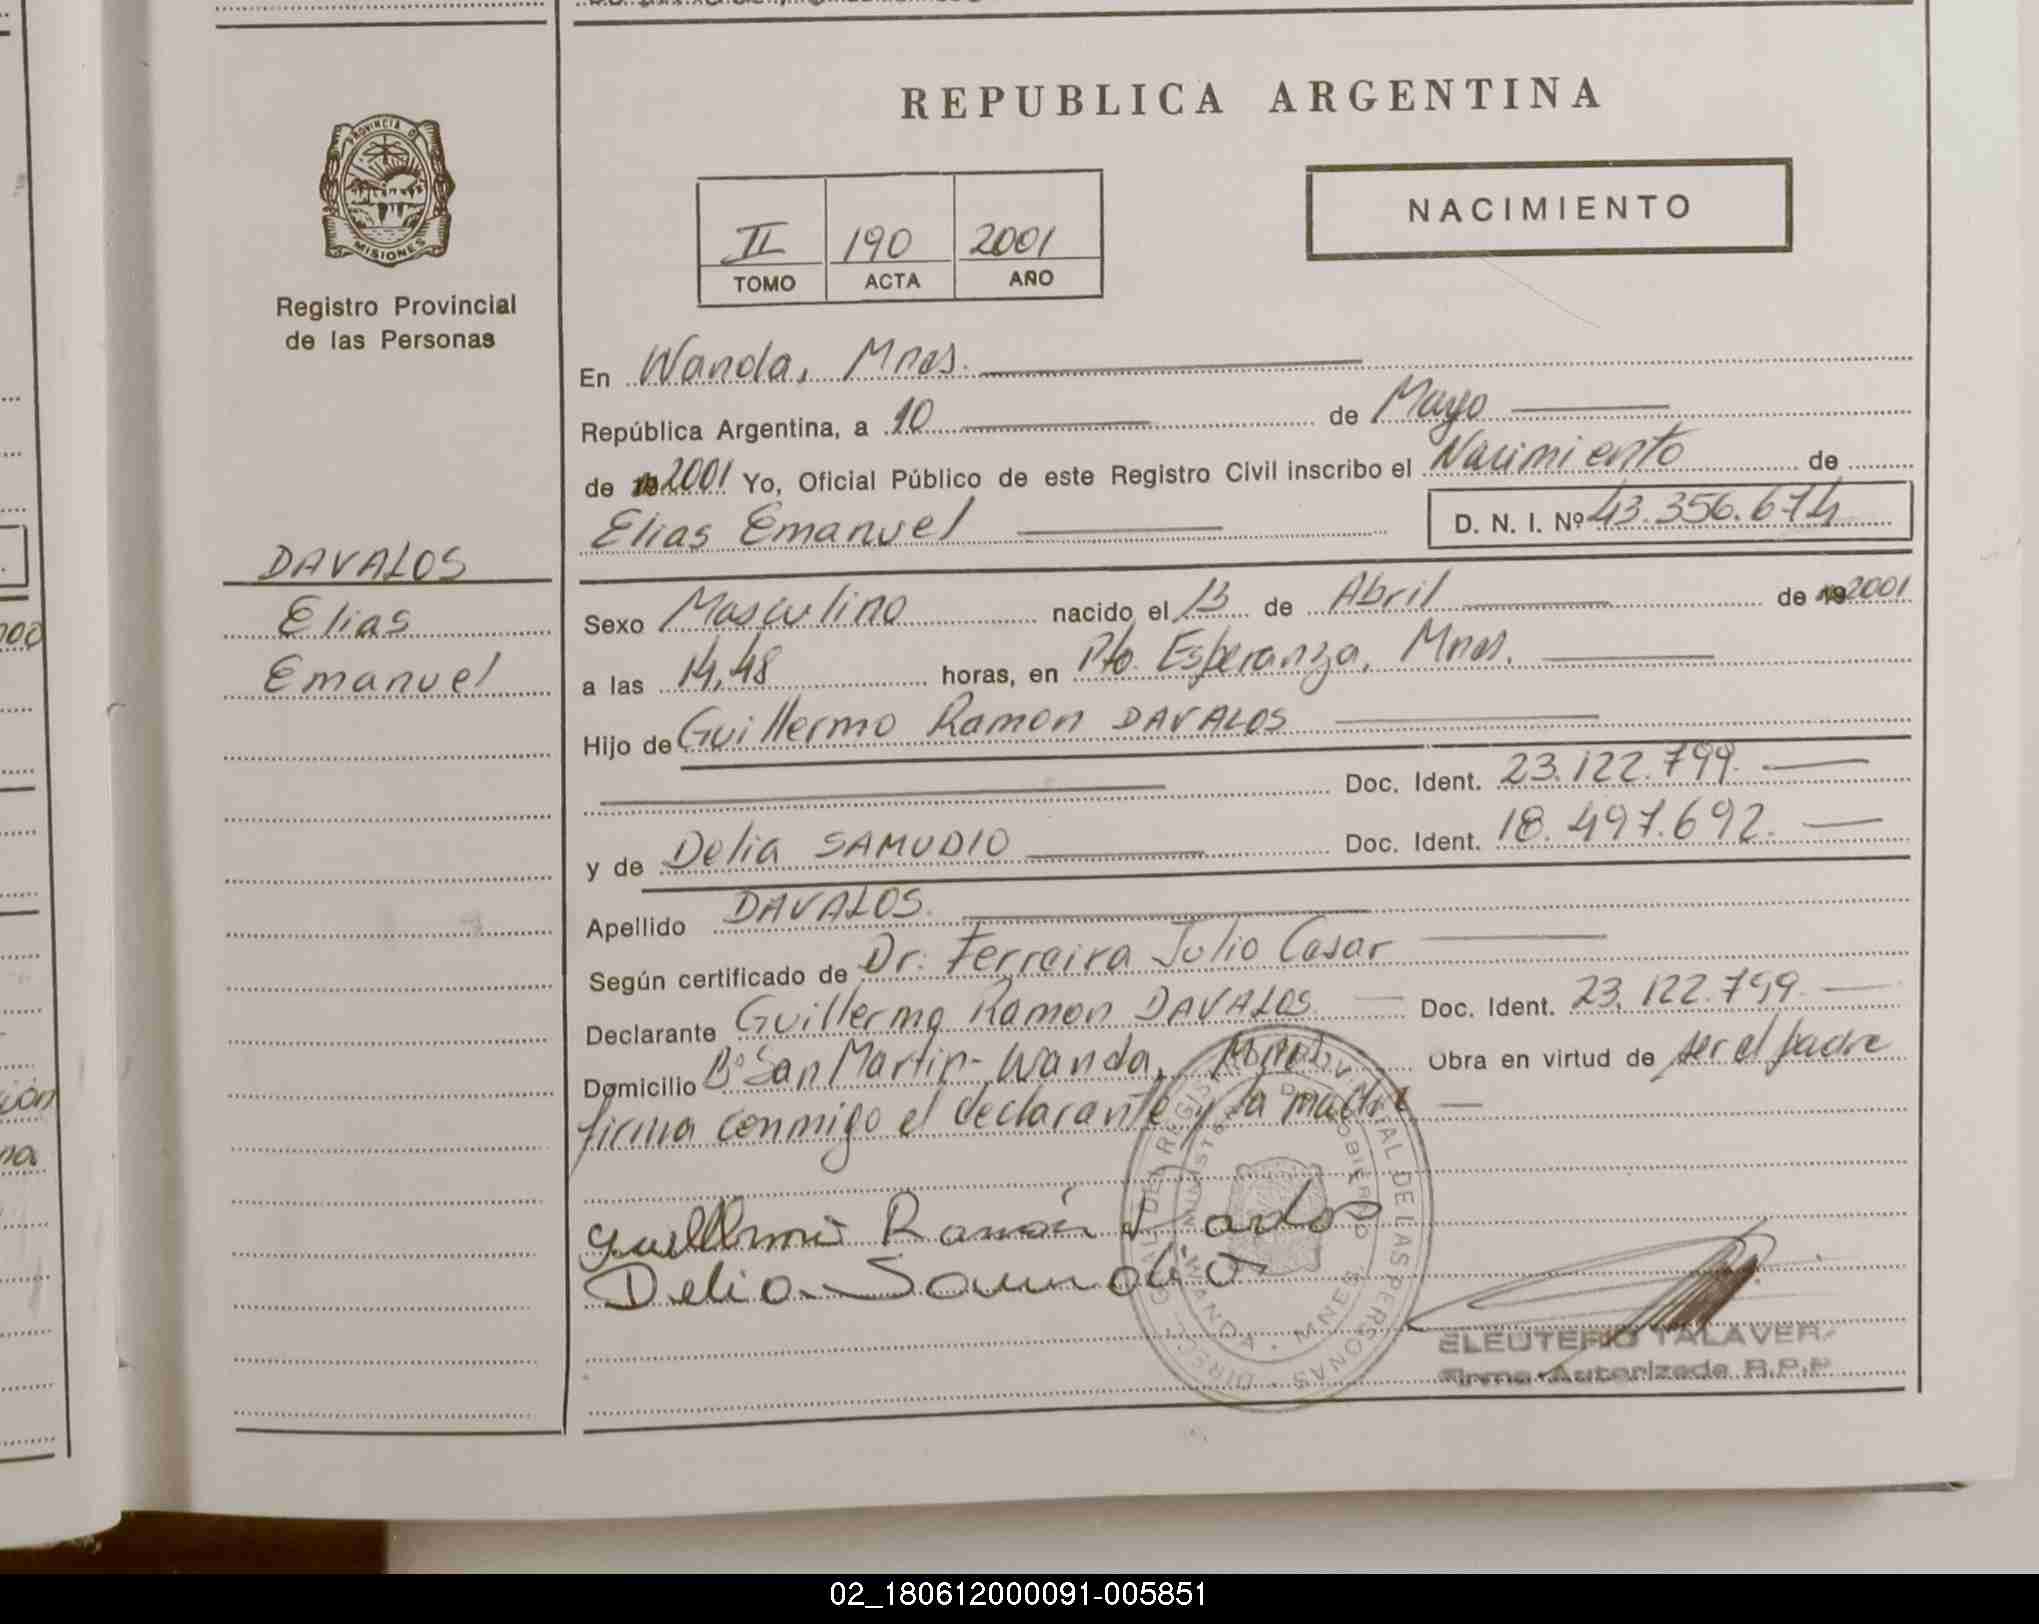 REPUBLICA ARGENTINA
PROVINCIA D
MISIONES
Registro Provincial
de las Personas
NACIMIENTO
II 190 2001
TOMO ACTA AÑO
En Wanda, Mnes.
República Argentina, a 10 de Mayo
de 2001 Yo, Oficial Público de este Registro Civil inscribo el Nacimiento de
Elias Emanuel D. N. I. Nº 43.356.674
DAVALOS
Elias
Emanuel
Sexo Masculino nacido el 13 de Abril de 19 2001
a las 14,48 horas, en Pto. Esperanza, Mnes.
Hijo de Guillermo Ramon DAVALOS
Doc. Ident. 23.122.799.
y de Delia SAMUDIO Doc. Ident. 18.497.692.
Apellido DAVALOS.
Según certificado de Dr. Ferreira Julio Cesar
Declarante Guillermo Ramon DAVALOS Doc. Ident. 23.122.799.
Domicilio Bº San Martin - Wanda, Mnes. Obra en virtud de ser el padre
firma conmigo el declarante y la madre
Guillermo Ramón
Delia Samudio
MNES
WANDA
ELEUTERIO TALAVER
Firma Autorizada R.P.P
02_180612000091-005851